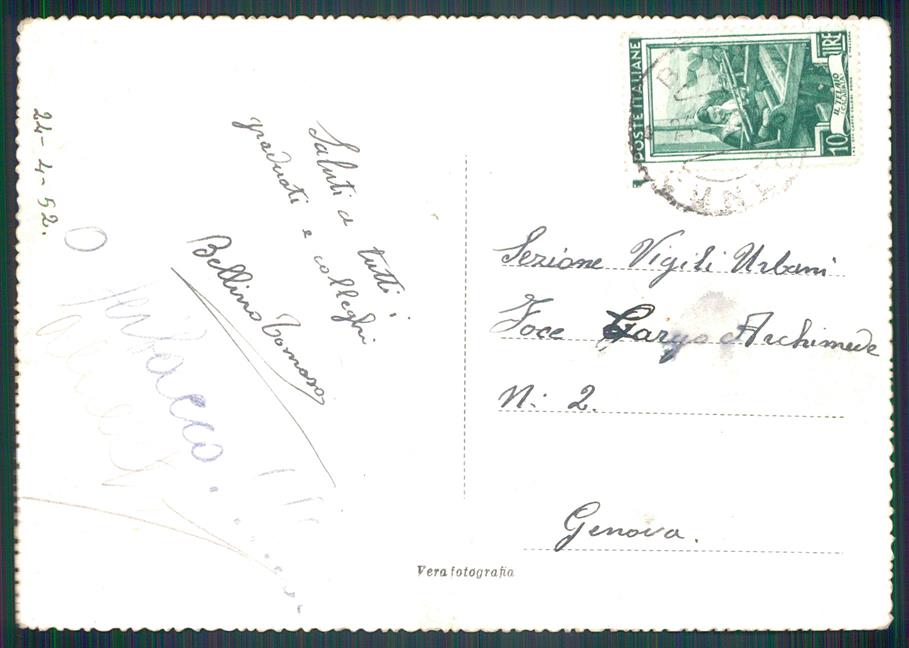 24-4-52.
Saluti a tutti i
graduati e colleghi
Bellino Tomaso
Per Bacco!
POSTE ITALIANE
LIRE
10
IL TELAIO
Sezione Vigili Urbani
Foce Largo Archimede
N: 2.
Genova.
Vera fotografia